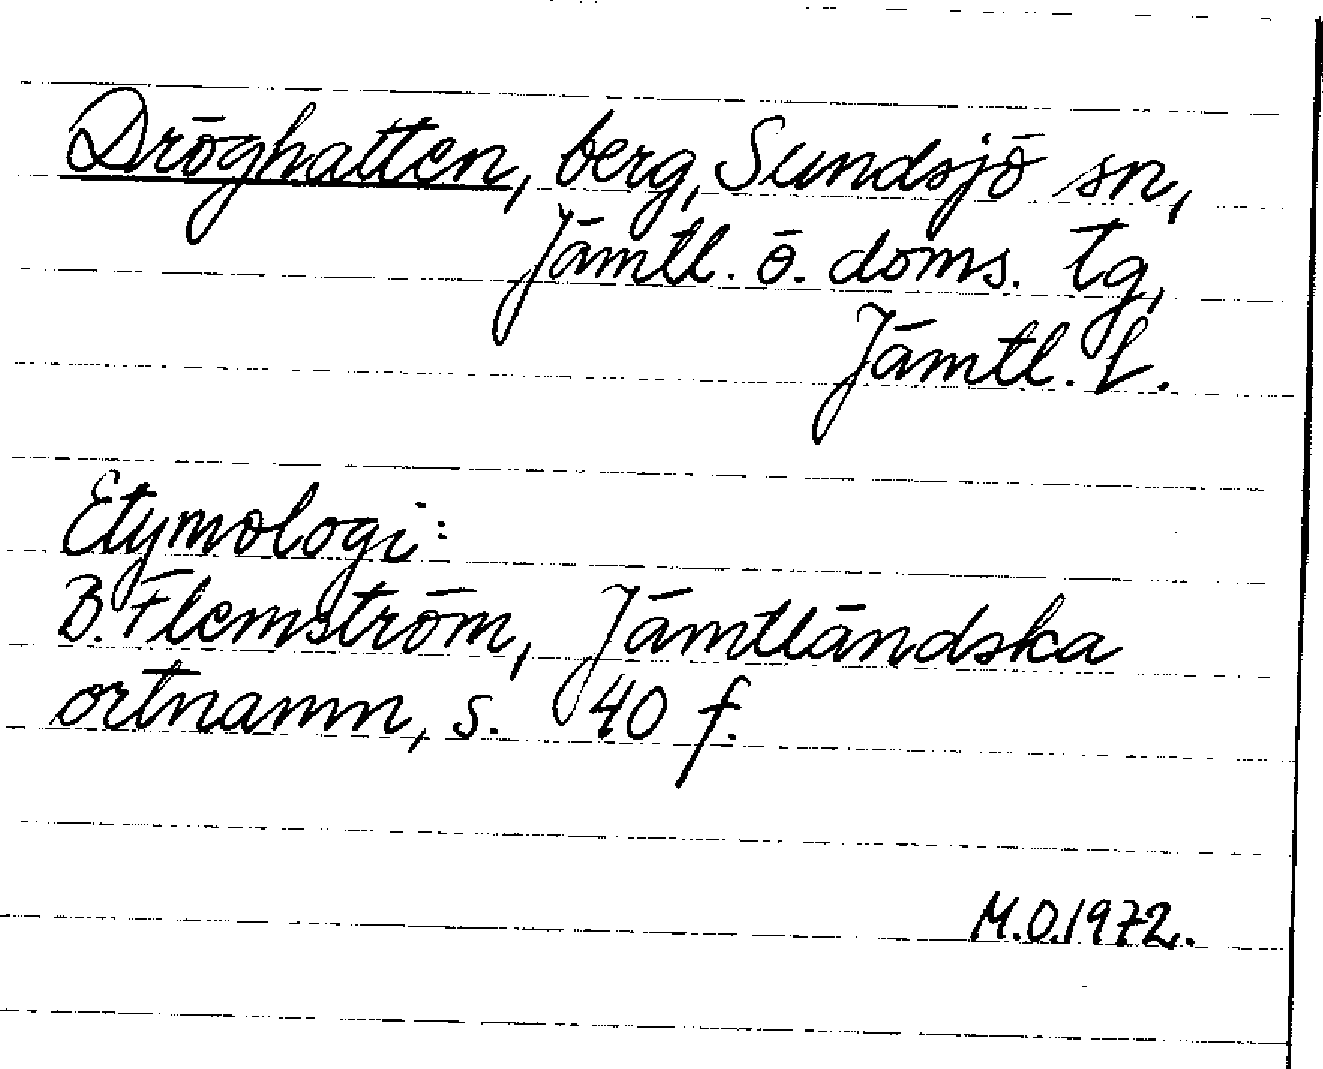 Dröghatten, berg, Sundsjö sn,
Jämtl. ö. doms. tg,
Jämtl. l.
Etymologi:
B. Flemström, Jämtländska
ortnamn, s. 40 f.
M.O.1972.